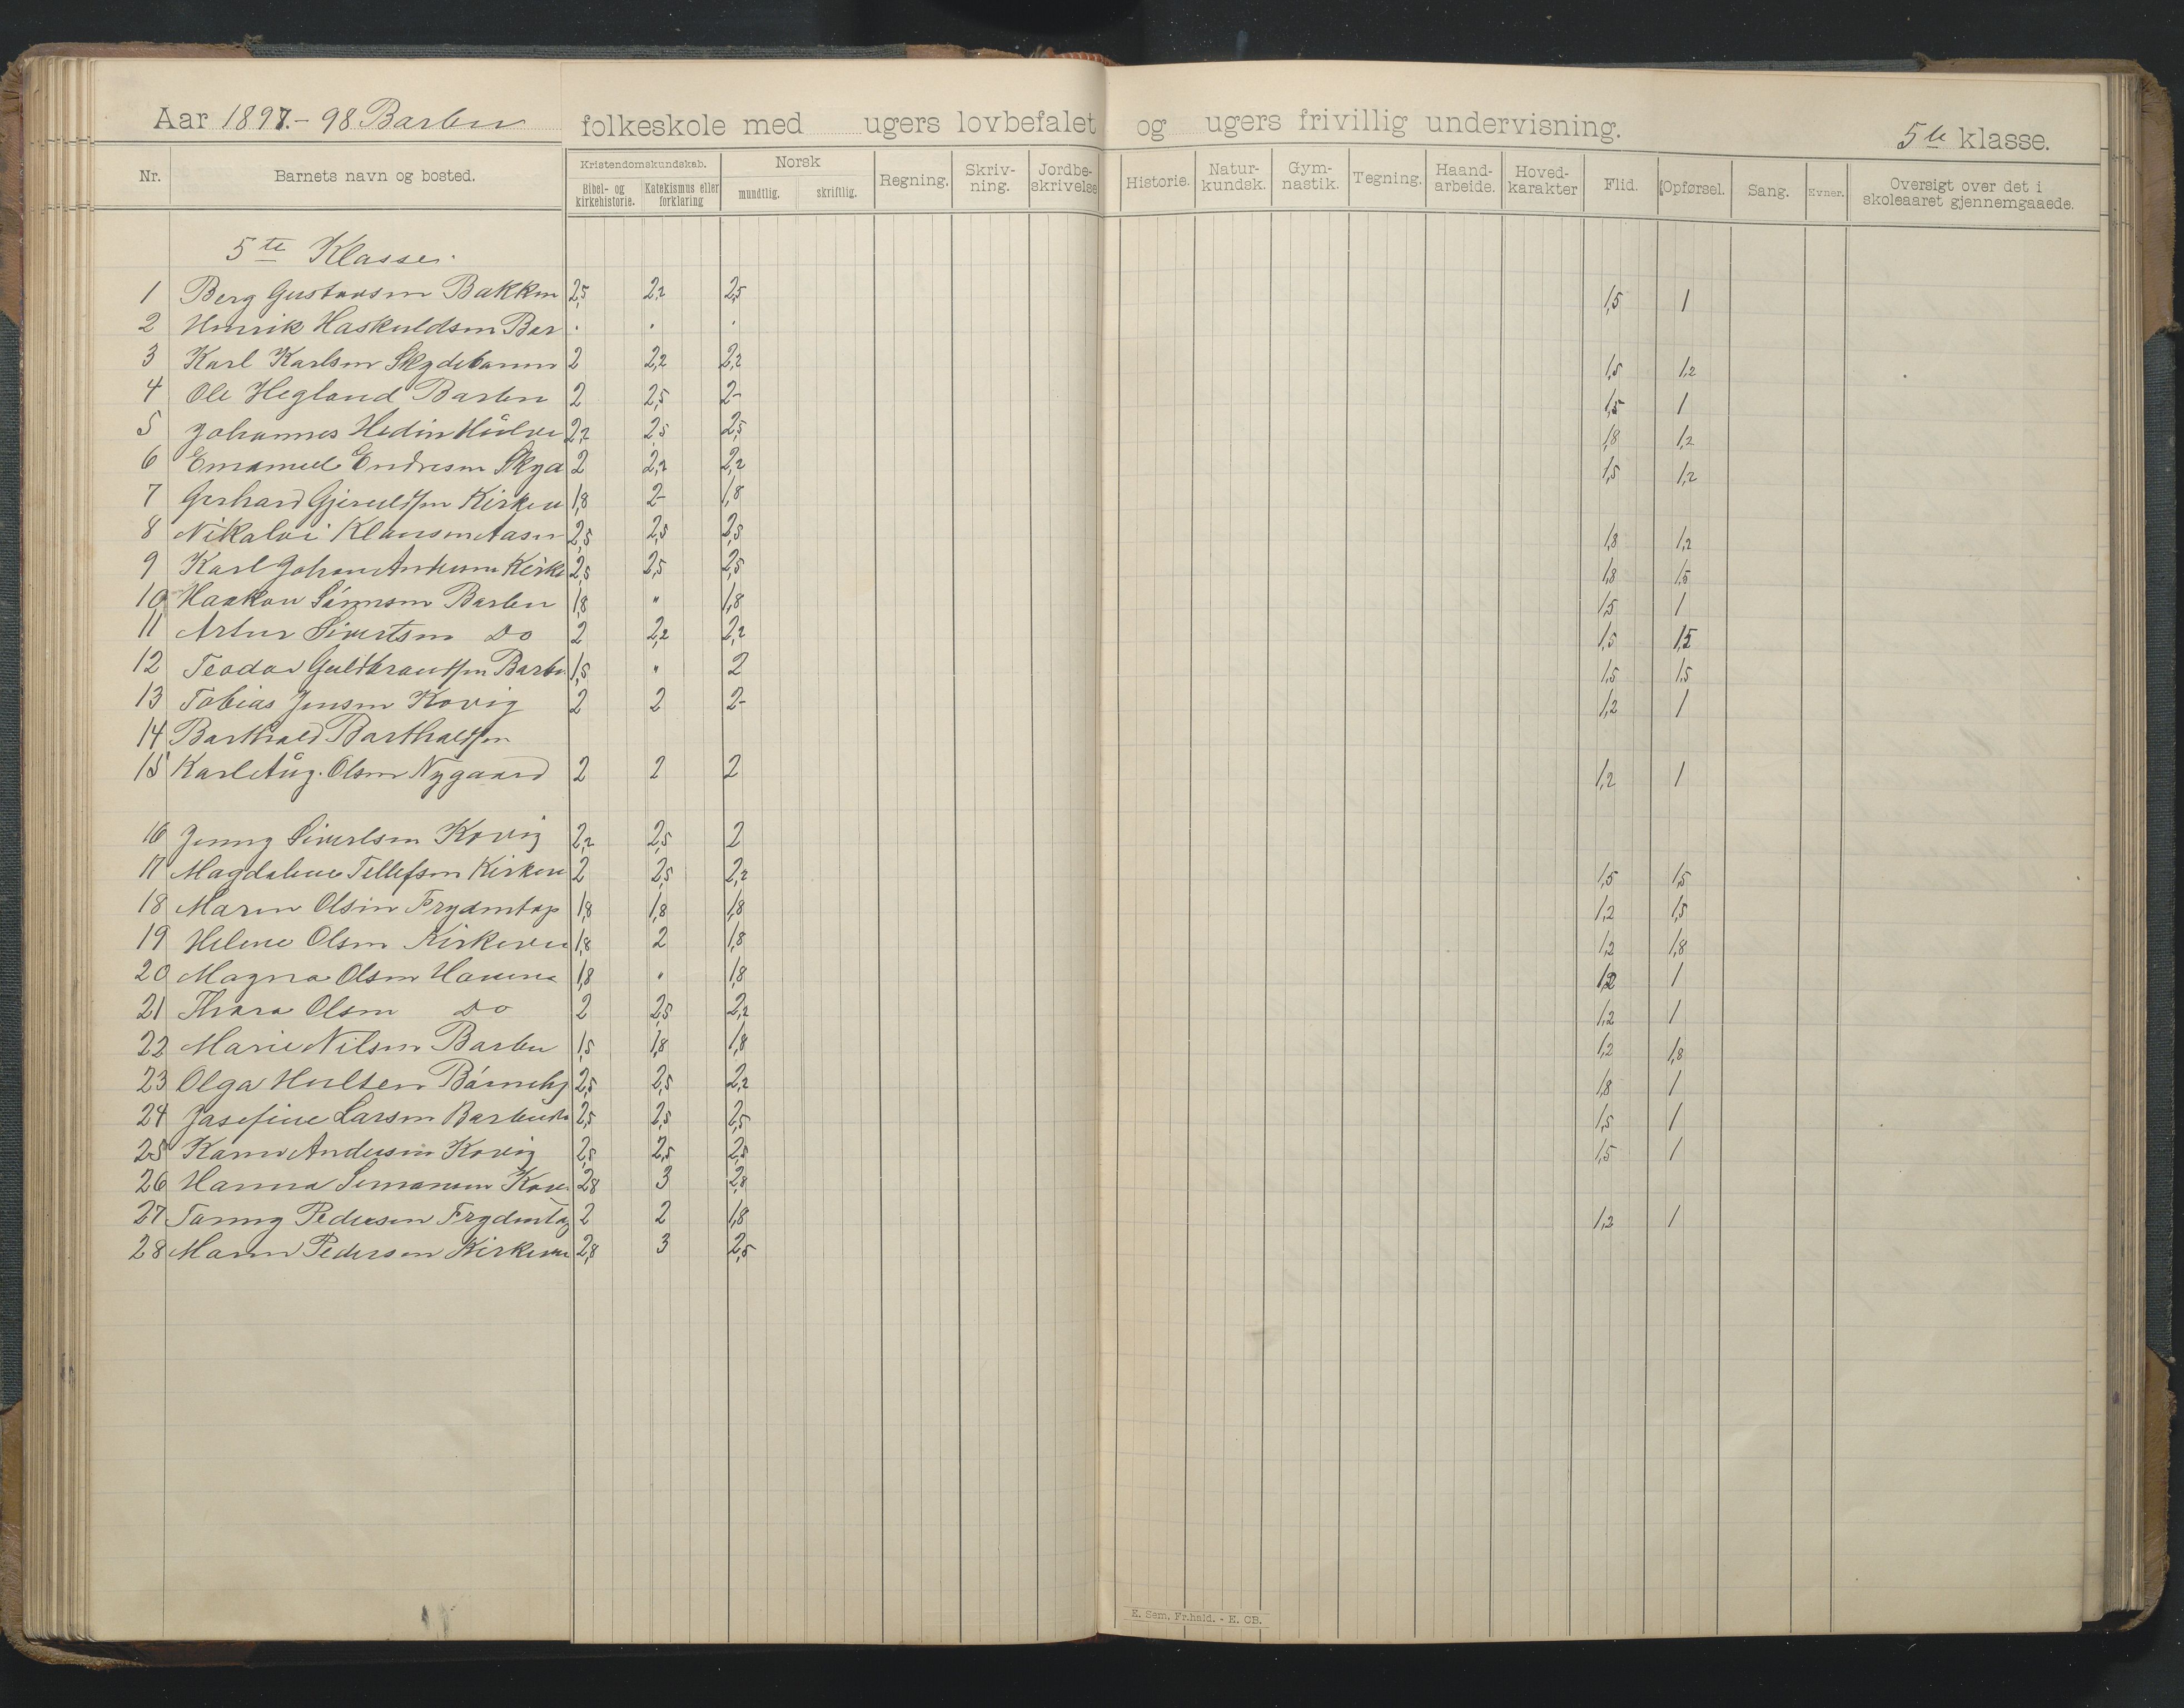 Aar 1897.- 98 Barbu folkeskole med ugers lovbefalet og ugers frivillig undervisning. 5te klasse.
Nr. Barnets navn og bosted. Kristendomskundskab. Bibel- og kirkehistorie. Katekismus eller forklaring Norsk mundtlig. skriftlig. Regning. Skriv-ning. Jordbe-skrivelse Historie. Natur-kundsk. Gym-nastik. Tegning. Haand-arbeide. Hoved-karakter Flid. Opførsel. Sang. Evner. Oversigt over det i skoleaaret gjennemgaaede.
5te Klasse.
1 Berg Gustavsen Bakken 2,5 2,2 2,5 1,5 1
2 Henrik Haskuldsen Bar . . .
3 Karl Karlsen Skydebanen 2 2,2 2,2 1,5 1,2
4 Ole Hegland Barbu 2 2,5 2- 1,5 1
5 Johannes Hedin 2,2 2,5 2,5 1,8 1,2
6 Emanuel Endresen Skyd 2 2,2 2,2 1,5 1,2
7 Gerhard Gjeruldsen Kirkev 1,8 2- 1,8
8 Nikolai Klausen Aasen 2,5 2,5 2,5 1,8 1,2
9 Karl Johan Andersen Kirke 2,5 2,5 2,5 1,8 1,5
10 Haakon Sørensen Barbu 1,8 " 1,8 1,5 1
11 Artur Sivertsen Do 2 2,2 2,2 1,5 1,5
12 Teodor Guldbrandsen Barbu 1,5 " 2 1,5 1,5
13 Tobias Jensen Kovig 2 2 2- 1,2 1
14 Barthald Barthaldsen
15 Karl Aug. Olsen Nygaard 2 2 2 1,2 1
16 Jenny Sivertsen Kovig 2,2 2,5 2
17 Magdalene Tellefsen Kirkev 2 2,5 2,2 1,5 1,5
18 Maren Olsen Frydentop 1,8 1,8 1,8 1,2 1,5
19 Helene Olsen Kirkevei 1,8 2 1,8 1,2 1,8
20 Magna Olsen 1,8 " 1,8 1,2 1
21 Thora Olsen Do 2 2,5 2,2 1,2 1
22 Marie Nilsen Barbu 1,5 1,8 1,8 1,2 1,8
23 Olga Hulten Børnehj 2,5 2,5 2,2 1,8 1
24 Josefine Larsen 2,5 2,5 2,5 1,5 1
25 Karen Andersen Kovig 2,5 2,5 2,5 1,5 1
26 Hanna Simonsen Kov 2,8 3 2,8
27 Fanny Pedersen Frydentop 2 2 1,8 1,2 1
28 Maren Pedersen Kirkevei 2,8 3 2,5
E. Sem. Fr.hald. - E. CB.